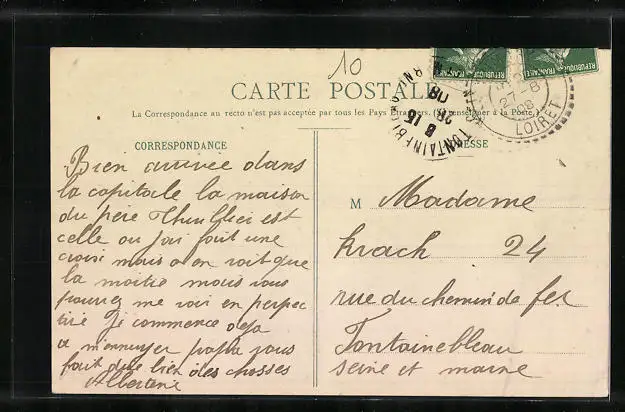 10
CARTE POSTALE
La Correspondance au recto n'est pas acceptée par tous les Pays Etrangers. (Se renseigner à la Poste).
REPUBLIQUE FRANÇAISE
REPUBLIQUE FRANÇAISE
27 -8
08
LOIRET
FONTAINEBLEAU
8 15
08
CORRESPONDANCE
Bien arrivée dans
la capitale la maison
du père est
celle ou jai fait une
croix mais on en voit que
la moitié mais vous
pourrez me voir en perpec
tive Je commence deja
a m'ennuyer papa vous
fait dire bien des choses
Albertine
ADRESSE
M Madame
Krach 24
rue du chemin de fer
Fontainebleau
seine et marne